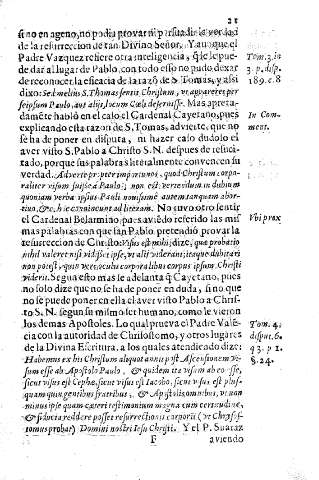 21
si no en ageno, no podia provar ni persuadir la verdad
de la resurreccion de tan Divino Señor. Y aunque el
Padre Vazquez refiere otra inteligencia, q̃ le pue-
de dar al lugar de Pablo, con todo esso no pudo dexar
de reconocer la eficacia de la razõ de S. Tomas, y assi
dixo: Sed melius S. Thomas sentit Christum, ut appareret per
seipsum Paulo, aut alijs, locum Cœli deseruisse. Mas apreta-
damẽte habló en el caso el Cardenal Cayetano, pues
explicando esta razon de S. Tomas, advierte, que no
se ha de poner en disputa, ni hazer caso dudoso el
aver visto S. Pablo a Christo S. N. despues de resuci-
tado, porque sus palabras literalmente convencen su
verdad. Adverte propter importunos, quod Christum corpo-
raliter visum fuisse à Paulo; non est vertendum in dubium
quoniam verba ipsius Pauli novissimè autem tanquam abor-
tivo, &c. hic convincunt ad literam. No tuvo otro sentir
el Cardenal Belarmino, pues aviẽdo referido las mis
mas palabras con que san Pablo pretendió provar la
resurreccion de Christo: Visus est mihi; dize, quæ probatio
nihil valeret nisi vidisset ipse, vt alij viderant; itaque dubitari
non potest, quin vere, oculis corporalibus corpus ipsum Christi
viderit. Segun esto mas se adelanta q̃ Cayetano, pues
no solo dize que no se ha de poner en duda, sino que
no se puede poner en ella el aver visto Pablo a Chris-
to S. N. segun su mismo ser humano, como le vieron
los demas Apostoles. Lo qual prueva el Padre Valẽ-
cia con la autoridad de Chrisostomo, y otros lugares
de la Divina Escritura, a los quales atendiẽdo dize:
Habemus ex his Christum aliquot annis post Ascensionem vi-
sum esse ab Apostolo Paulo. & quidem ita visum ab eo esse,
sicut visus est Cephæ, sicut visus est Iacobo, sicut visus est plus-
quam quingentibus fratribus, & Apostolis omnibus, vt non
minus ipse quam cæteri testimonium magna cum certitudine,
& fiducia reddere posset resurrectionis corporis (vt Chrysos-
tomus probat) Domini nostri Iesu Christi. Y el P. Suarez
F aviendo
Tom. 3. in
3. p. disp.
189. c. 8
In Com-
ment.
Vbi prox
Tom. 4.
disput. 6.
q 3. p. 1.
§. 24.